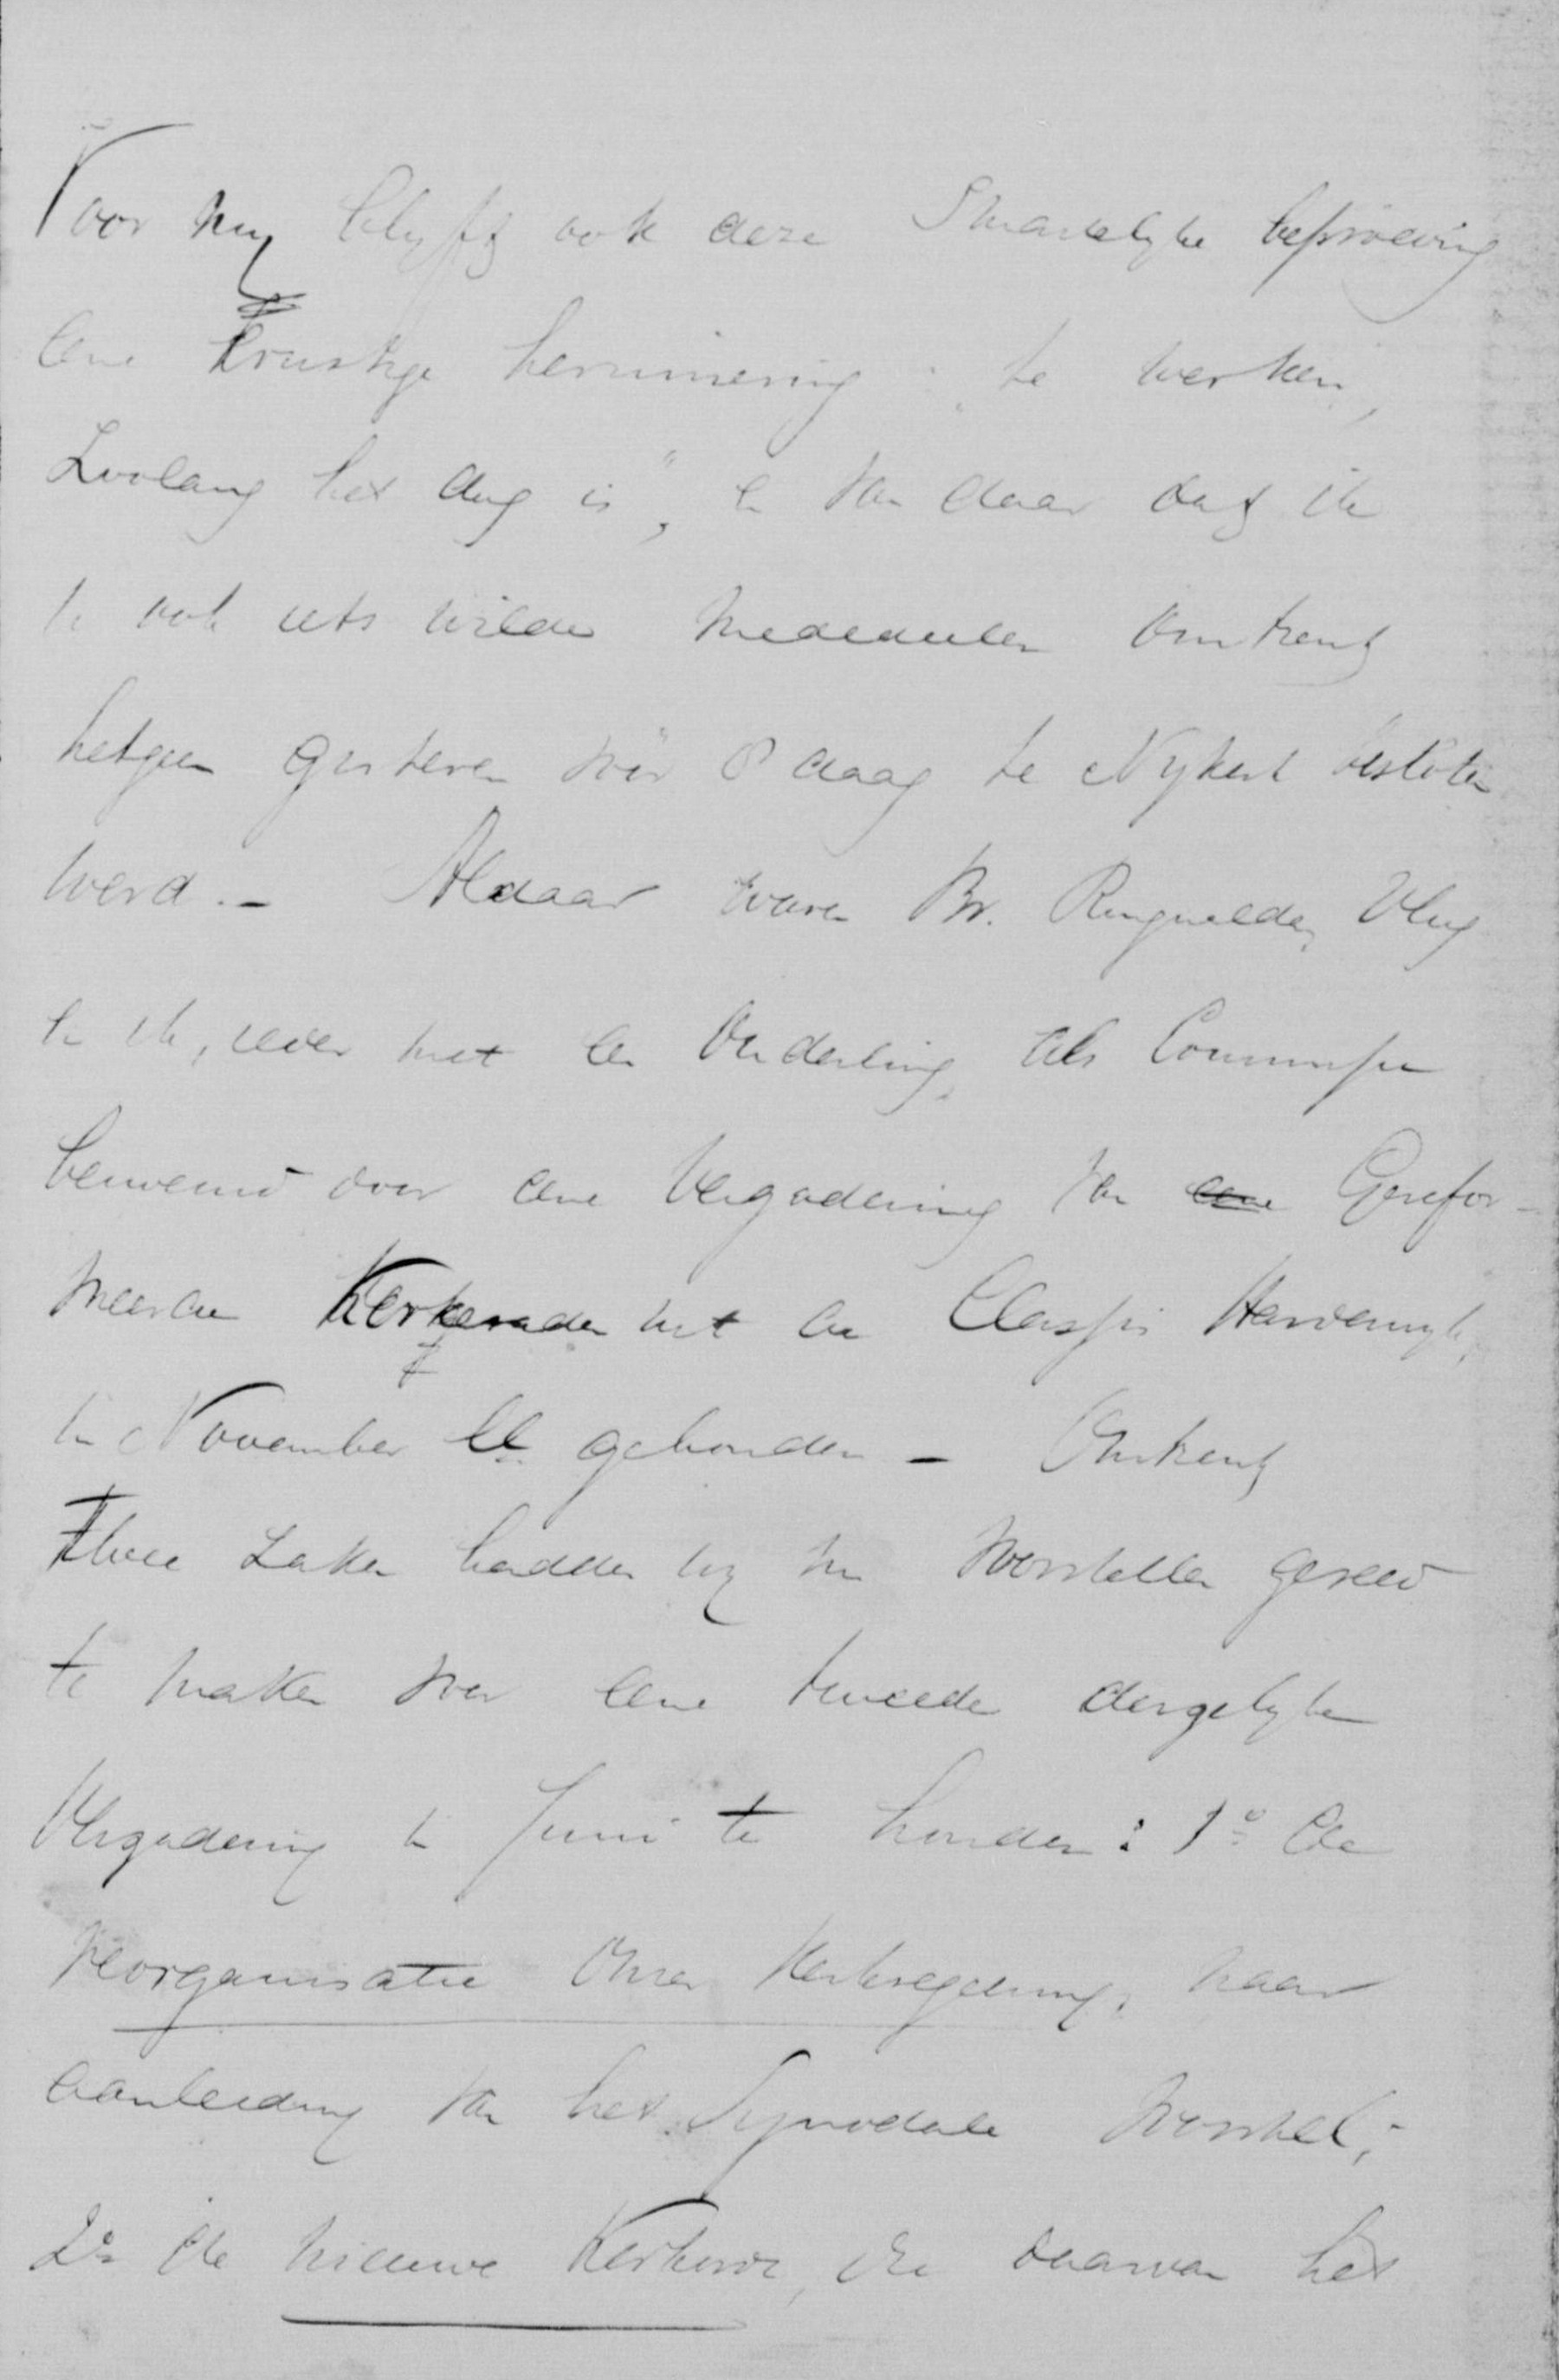 Voor my blyft ook deze smartelyke beproeving
eene ernstige herinnering: "te werken,
zoolang het dag is", en van daar dat ik
U ook iets wilde mededeelen omtrent
hetgeen gisteren vóór 8 daag te Nykerk besloten
werd. – Aldaar waren Br. Ringnalda, Vlug
en ik, ieder met een Ouderling, als Commissie
benoemd door eene Vergadering van eene Gerefor-
meerde Kerkeraden uit de Classis Harderwyk,
in November ll. gehouden – Omtrent
Twee zaken hadden wy een voorstellen gereed
te maken voor eene tweede dergelyke
Vergadering in Juni te houden: 1º de
reorganisatie onzer Kerkregering, naar
aanleiding van het Synodale voorstel;
2º de nieuwe Kerkorde, die daarvan het